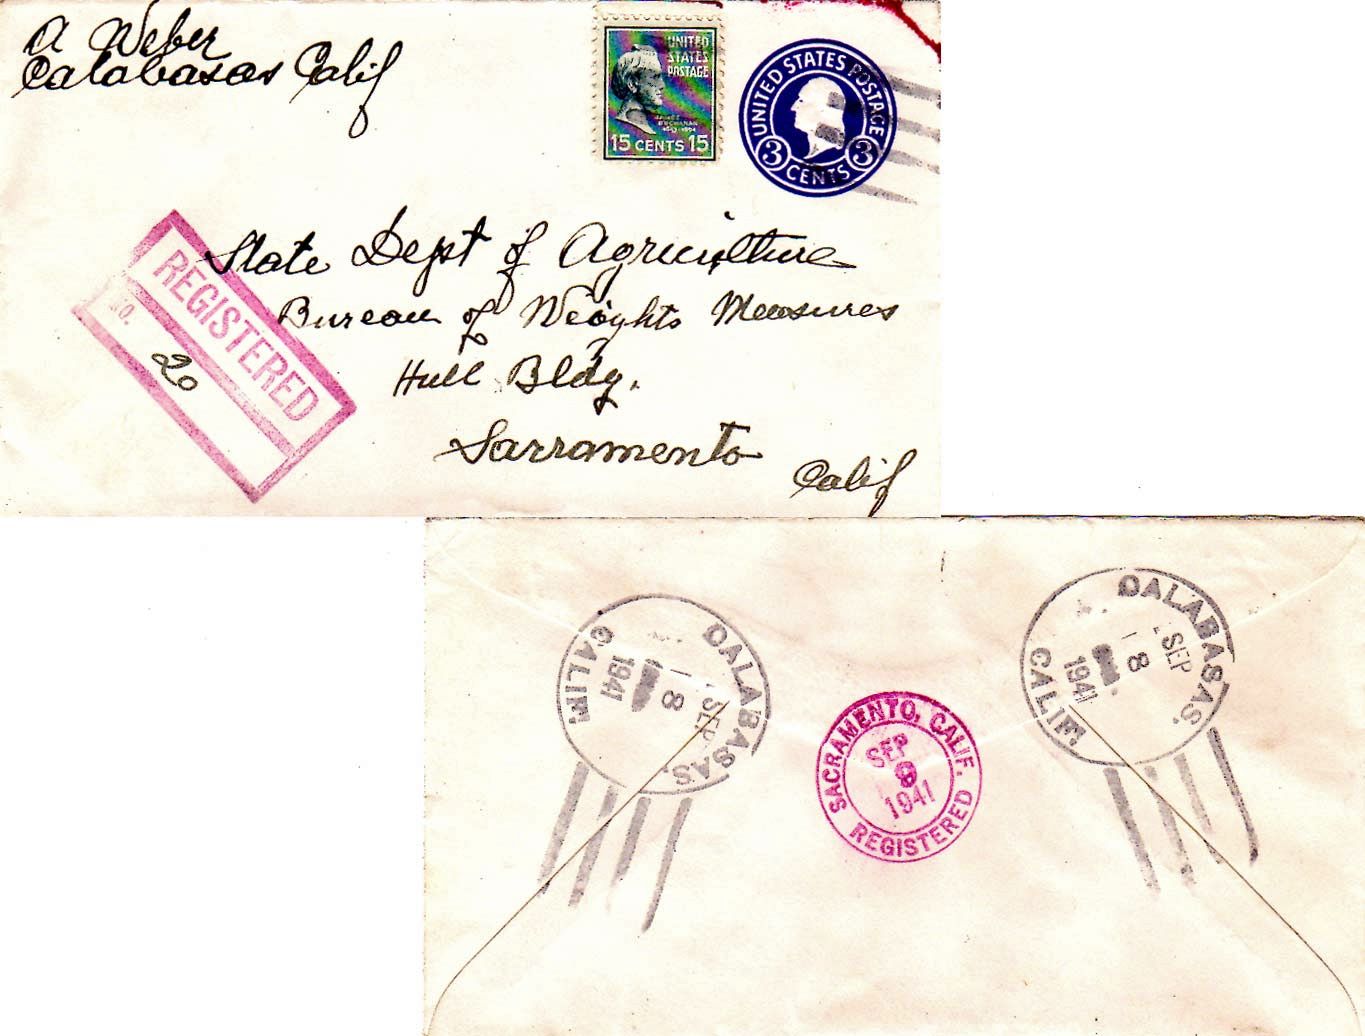 A Weber
Calabasas Calif
UNITED
STATES
POSTAGE
JAMES
BUCHANAN
15 CENTS 15
UNITED STATES POSTAGE
3 CENTS 3
REGISTERED
NO.
20
State Dept of Agriculture
Bureau of Weights Measures
Hull Bldg.
Sacramento
Calif
CALABASAS,
SEP
8
1941
CALIF.
SACRAMENTO, CALIF.
SEP
9
1941
REGISTERED
CALABASAS,
SEP
8
1941
CALIF.